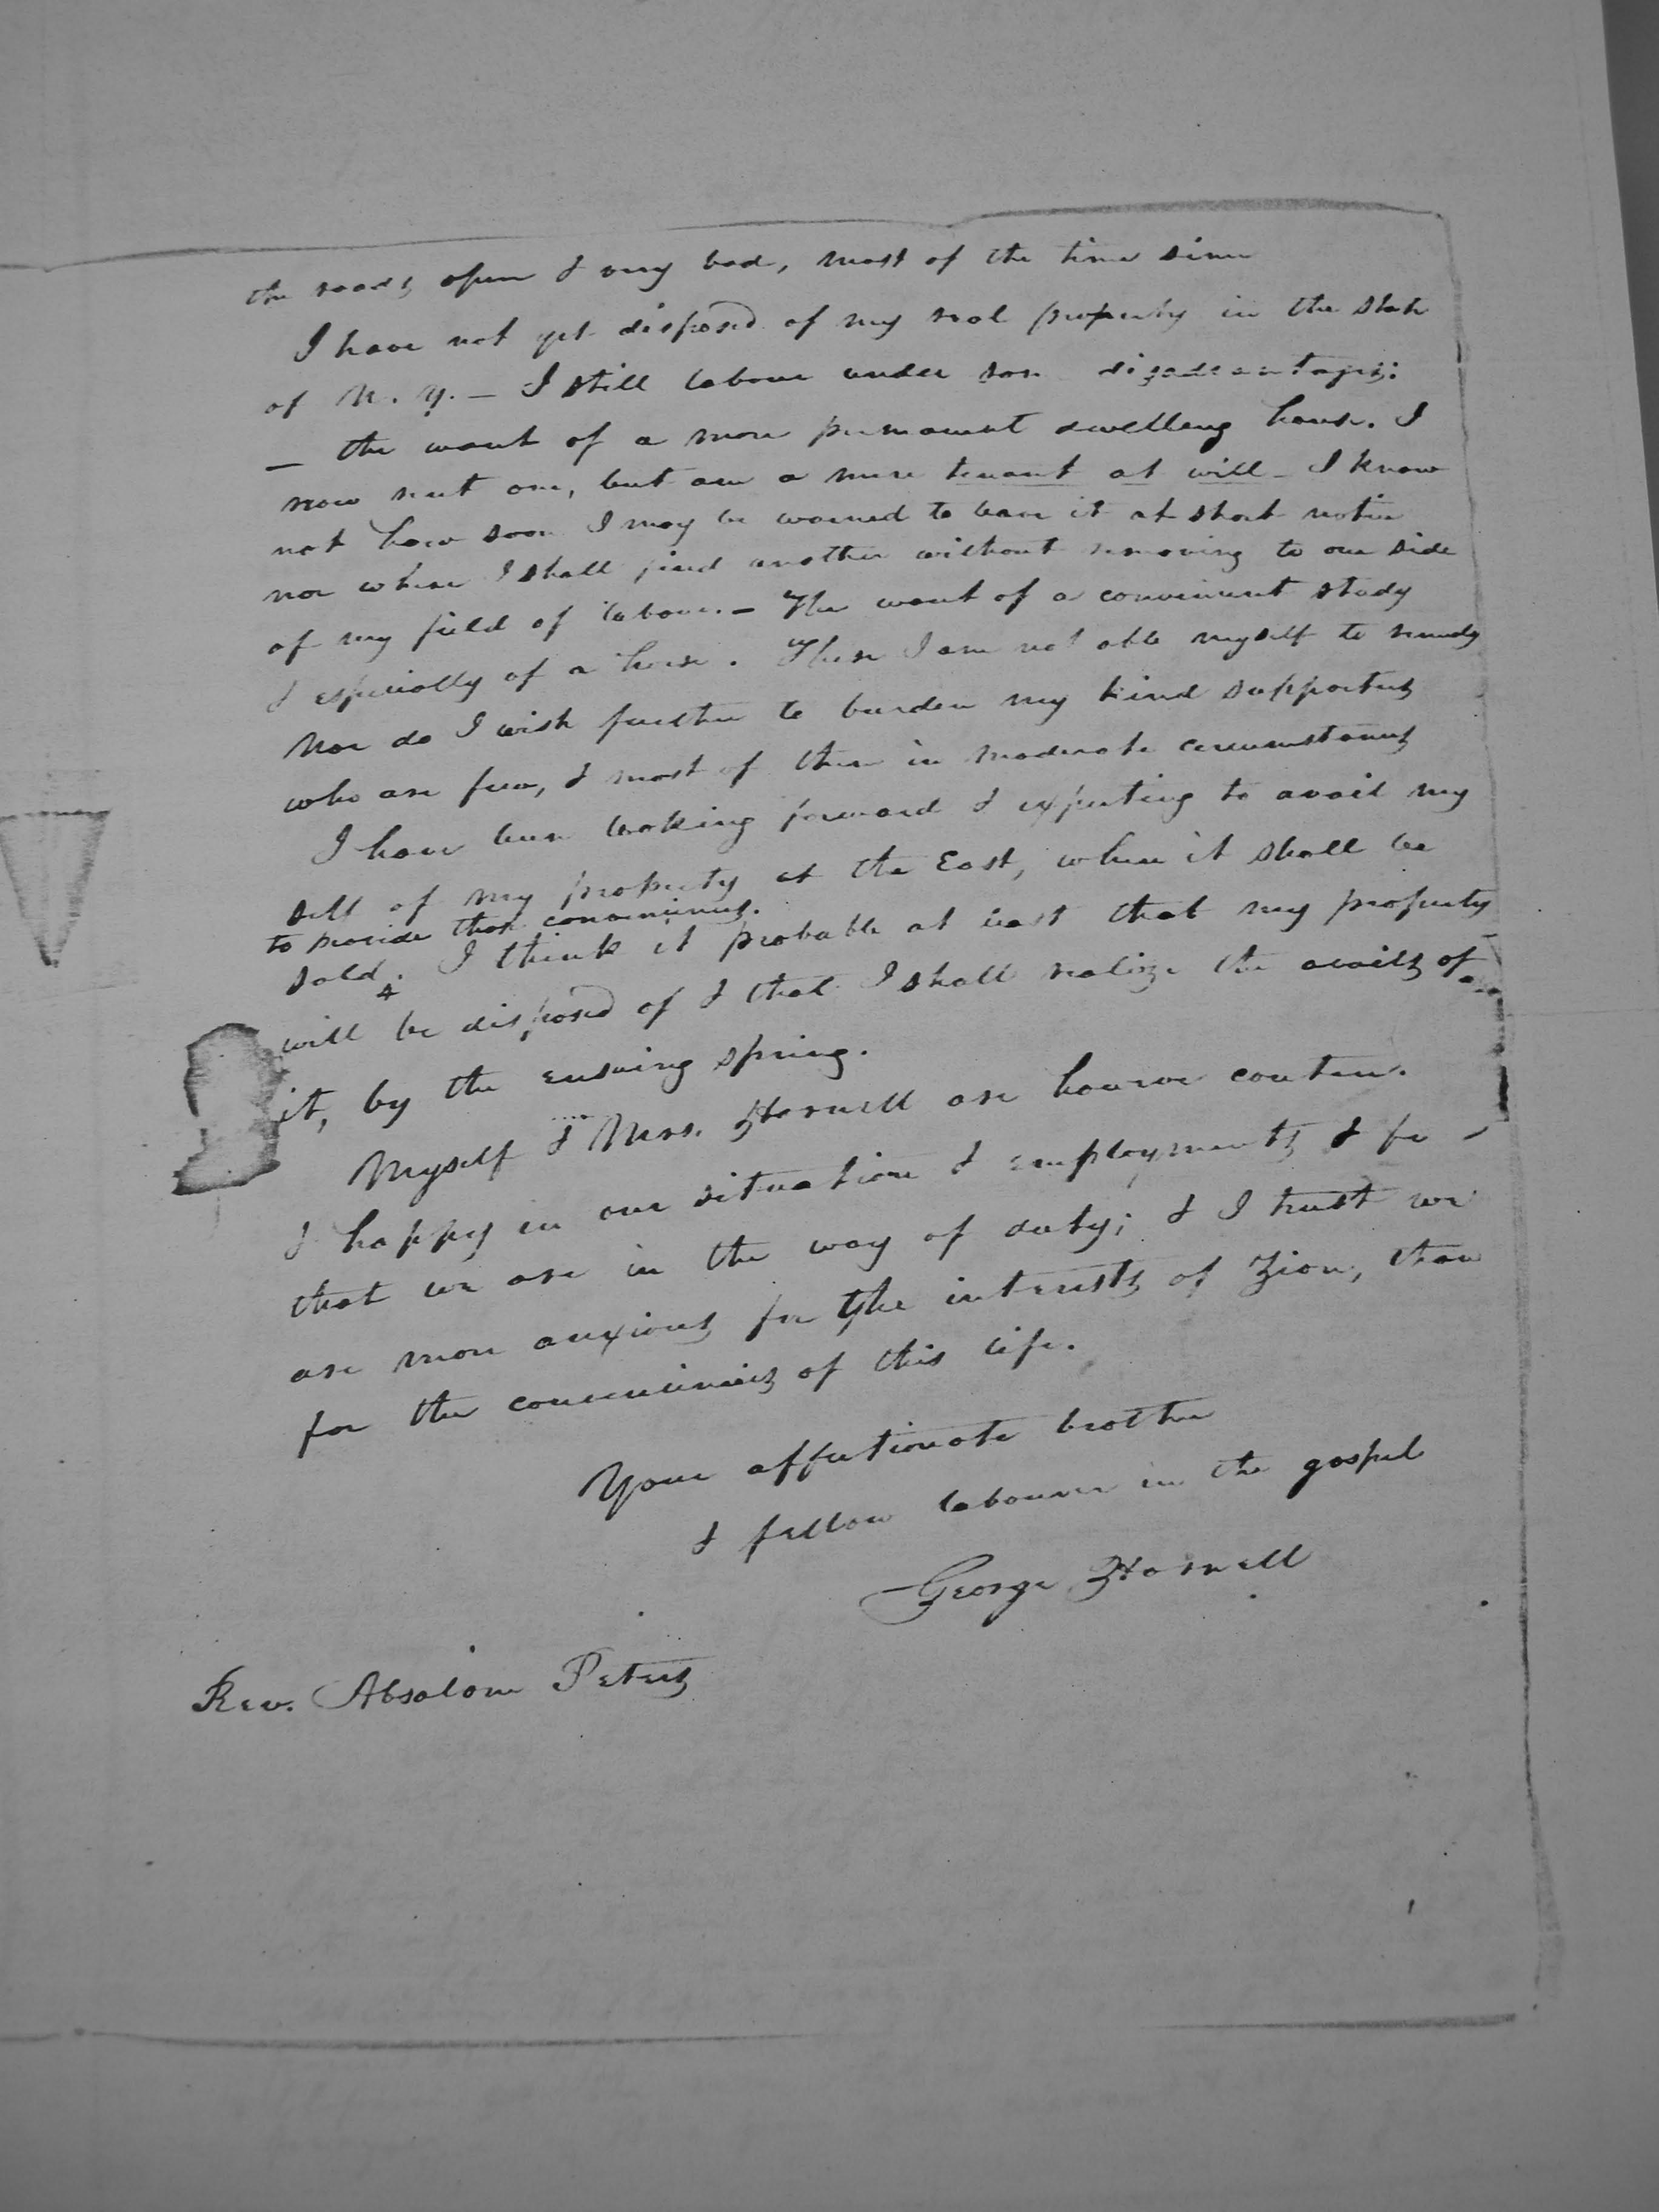 the roads open & very bad, most of the time since
I have not yet disposed of my real property in the State
of N. Y. — I still labour under som disadvantages:
— the want of a more permanent dwelling house. I
now rent one, but am a mere tenant at will — I know
not how soon I may be warned to leave it at short notice
nor where I shall find another without removing to one side
of my field of labour. — The want of a convenient study
& especially of a horse. These I am not able myself to remedy
Nor do I wish further to burden my kind supporters
who are few, & most of them in moderate circumstances
I have been looking forward & expecting to avail my
self of my property at the East, when it shall be
to provide these conveniences.
sold. I think it probable at least that my property
will be disposed of & that I shall realize the avails of
it, by the ensuing spring.
Myself & Mrs. Hornell are however conten
& happy in our situation & employments & fe
that we are in the way of duty; & I trust we
are more anxious for the interests of Zion, than
for the conveniences of this life.
Your affectionate brother
& fellow labourer in the gospel
George Hornell
Rev. Absalom Peters